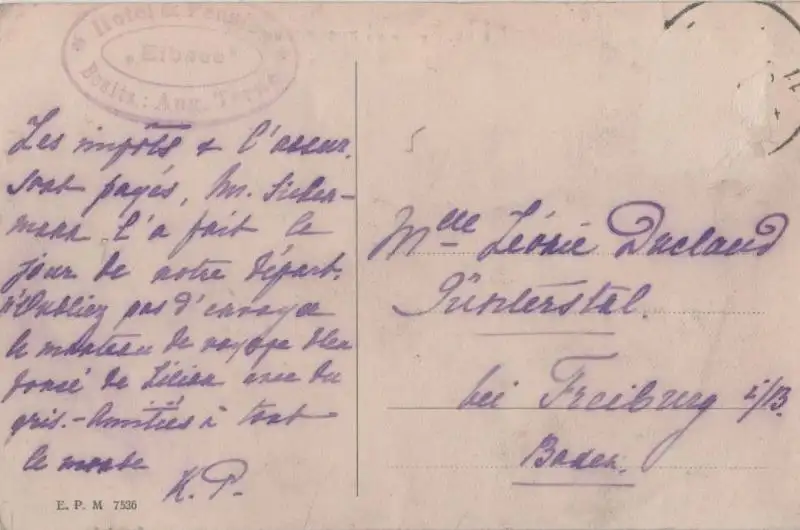 Hotel & Pension
"Elbsee"
Besitz: Aug.
Les impôts & l'assur.
sont payés, Mr. Sieber-
mann l'a fait le
jour de notre départ.
N'Oubliez pas d'envoyer
le manteau de voyage bleu
foncé de Lilian avec du
gris. - Amitiés à tout
le monde
K. P.
E. P. M 7536
Mlle Léonie Duclaud
Günterstal.
bei Freiburg i/B.
Baden.